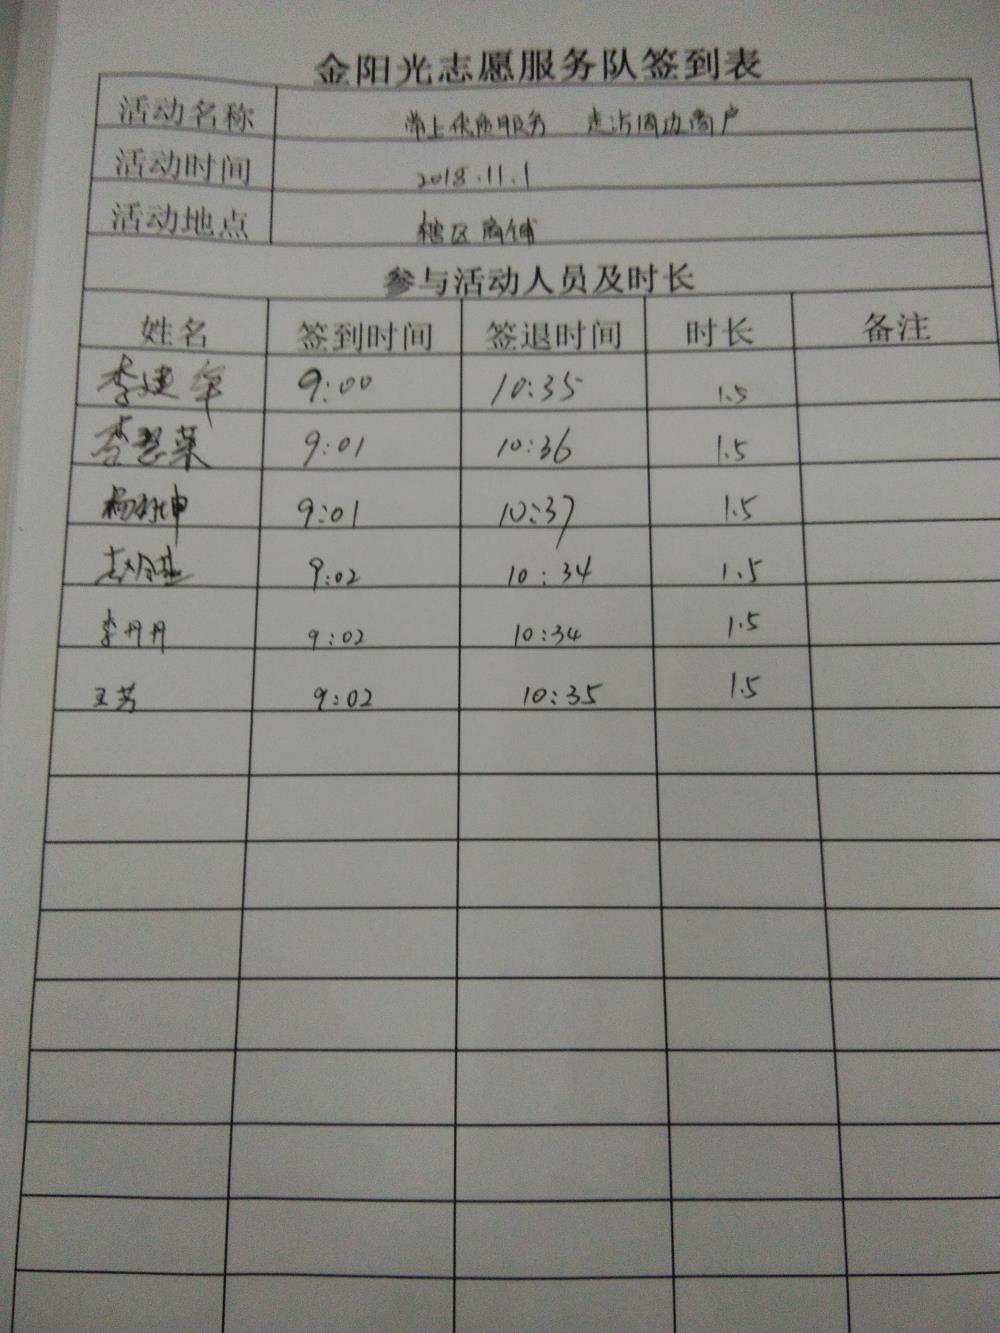 金阳光志愿服务队签到表
活动名称 带上优质服务 走访周边商户
活动时间 2018.11.1
活动地点 辖区商铺
参与活动人员及时长
姓名 签到时间 签退时间 时长 备注
李建军 9:00 10:35 1.5
李慧荣 9:01 10:36 1.5
9:01 10:37 1.5
9:02 10:34 1.5
李丹丹 9:02 10:34 1.5
王芳 9:02 10:35 1.5